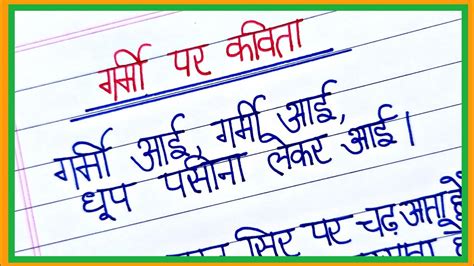 गर्मी पर कविता
गर्मी आई, गर्मी आई,
धूप पसीना लेकर आई।
सिर पर चढ़ आता है